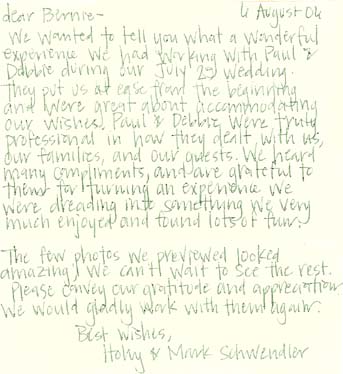 dear Bernie- 4 August 04
We wanted to tell you what a wonderful
experience we had working with Paul &
Debbie during our July 29 wedding.
They put us at ease from the beginning
and were great about accommodating
our wishes. Paul & Debbie were truly
professional in how they dealt with us,
our families, and our guests. We heard
many compliments, and are grateful to
them for turning an experience we
were dreading into something we very
much enjoyed and found lots of fun.
The few photos we previewed looked
amazing! We can't wait to see the rest.
Please convey our gratitude and appreciation.
We would gladly work with them again.
Best wishes,
& Mark Schwendler